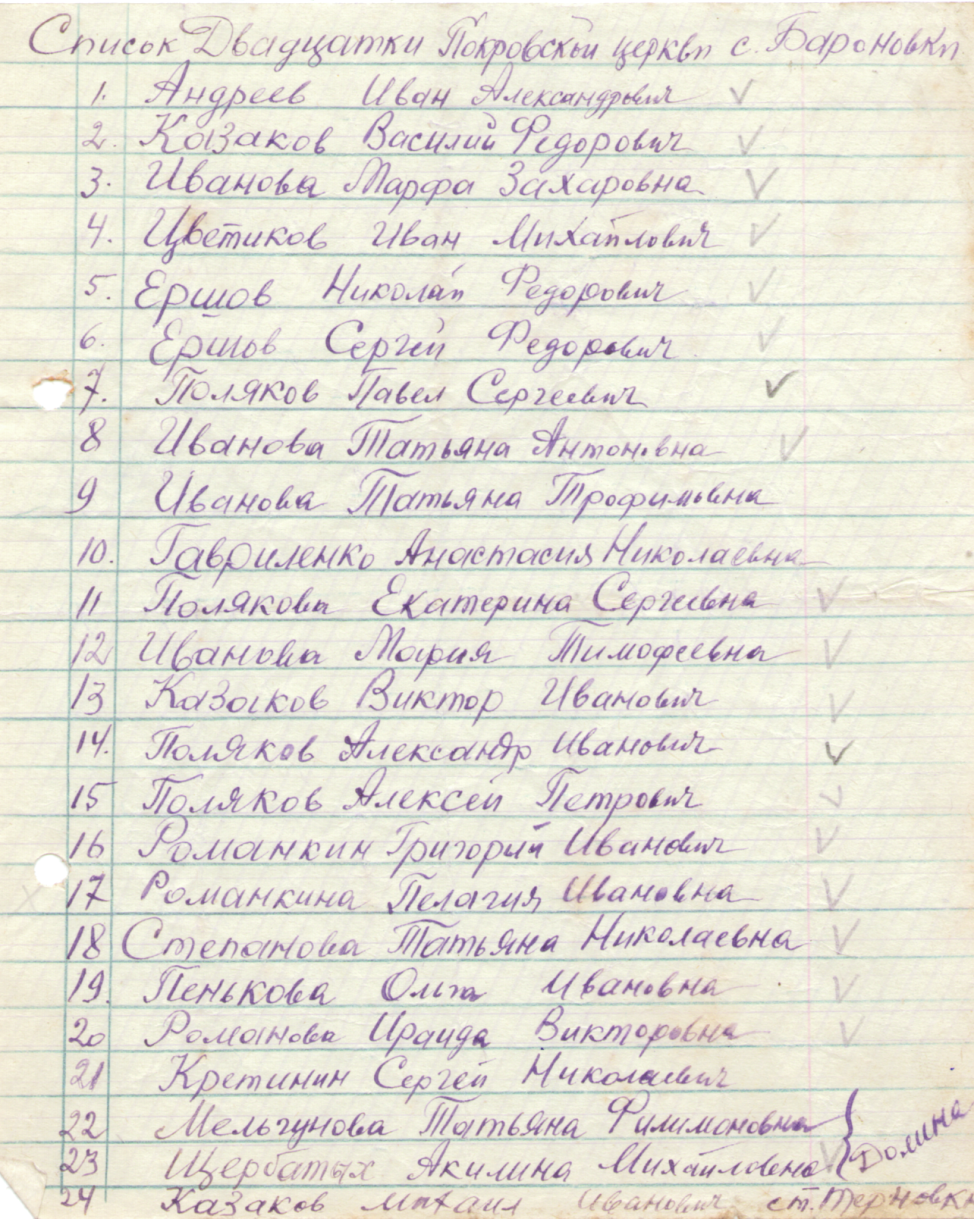 Список Двадцатки Покровской церкви с. Бароновки
1. Андреев Иван Александрович
2. Казаков Василий Федорович
3. Иванова Марфа Захаровна
4. Цветиков Иван Михайлович
5. Ершов Николай Федорович
6. Ершов Сергей Федорович
7. Поляков Павел Сергеевич
8 Иванова Татьяна Антоновна
9 Иванова Татьяна Трофимовна
10. Гавриленко Анастасия Николаевна
11 Полякова Екатерина Сергеевна
12 Иванова Мария Тимофеевна
13 Казаков Виктор Иванович
14. Поляков Александр Иванович
15 Поляков Алексей Петрович
16 Романкин Григорий Иванович
17 Романкина Пелагия Ивановна
18 Степанова Татьяна Николаевна
19. Пенькова Ольга Ивановна
20 Романова Ираида Викторовна
21 Кретинин Сергей Николаевич
22 Мельгунова Татьяна Филимоновна
23 Щербатых Акилина Михайловна Долина
24 Казаков Михаил Иванович ст. Терновка